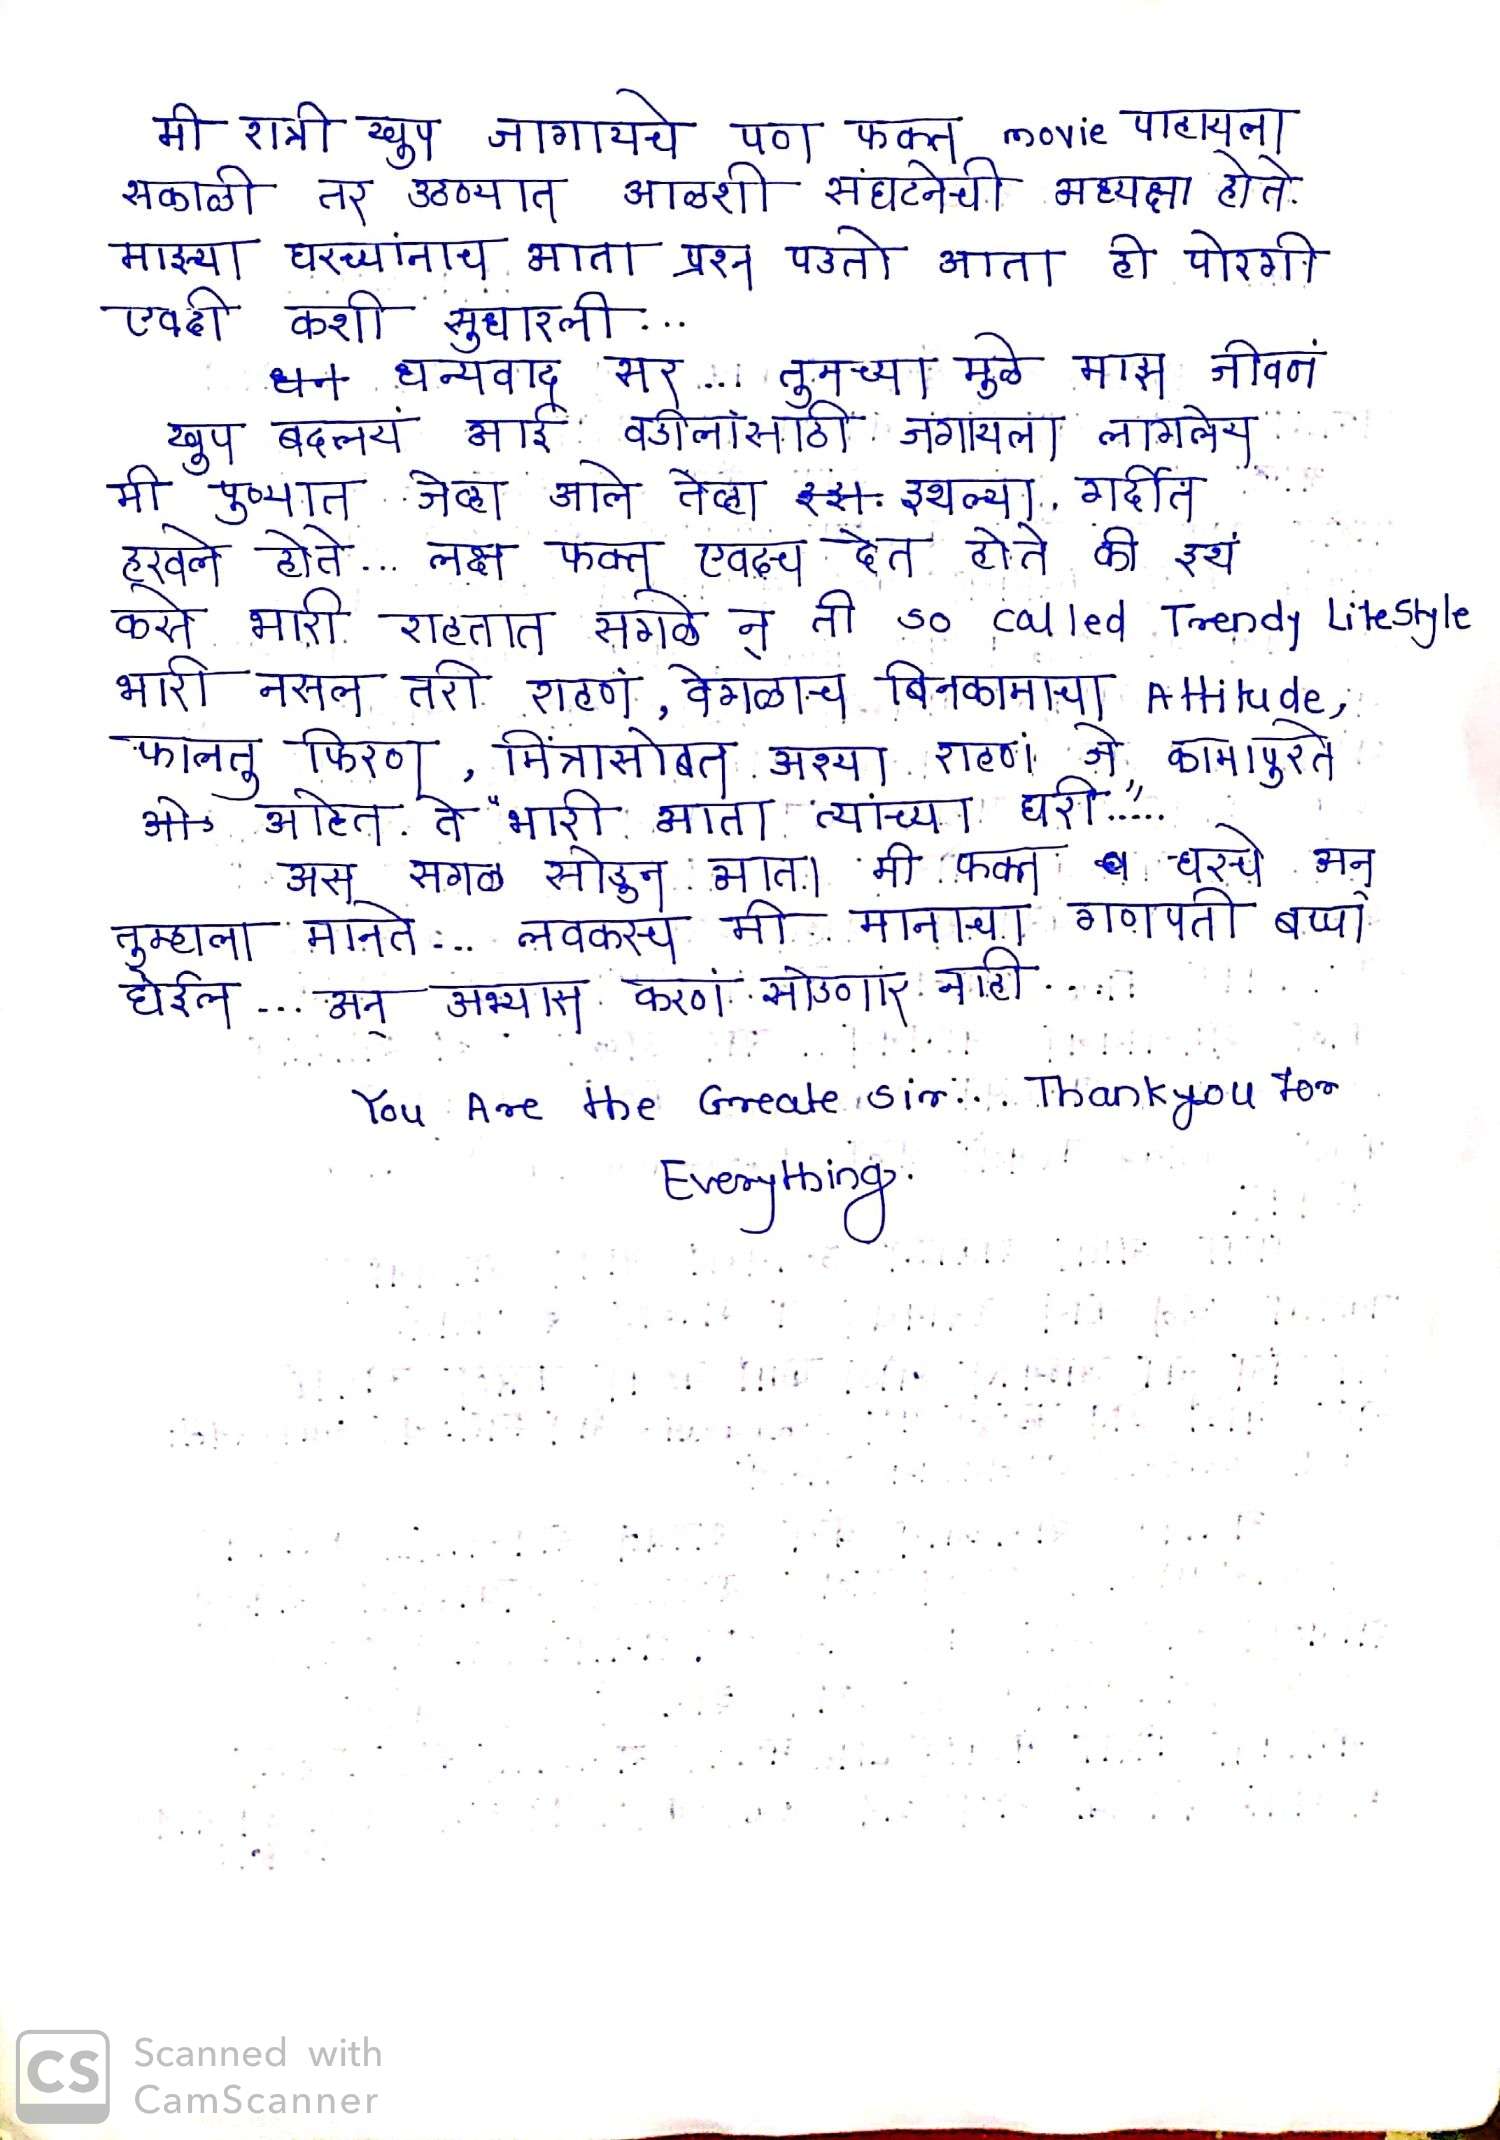 मी रात्री खुप जागायचे पण फक्त movie पाहायला
सकाळी तर उठण्यात आळशी संघटनेची अध्यक्षा होते.
माझ्या घरच्यांनाच आता प्रश्न पडतो आता ही पोरगी
एवढी कशी सुधारली...
धन्यवाद सर... तुमच्या मुळे माझ जीवनं
खुप बदलयं आई वडीलांसाठी जगायला लागलेय
मी पुण्यात जेव्हा आले तेव्हा इथल्या गर्दीत
हरवले होते... लक्ष फक्त एवढच देत होते की इथं
कसे भारी राहतात सगळे न् ती so called Trendy LifeStyle
भारी नसल तरी राहणं, वेगळाच बिनकामाचा Attitude,
फालतु फिरण, मित्रासोबत अश्या राहणं जे कामापुरते
आहेत. ते "भारी आता त्यांच्या घरी".....
अस सगळ सोडुन आता मी फक्त घरचे अन्
तुम्हाला मानते... लवकरच मी मानाचा गणपती बप्पा
घेईल... अन् अभ्यास करणं सोडणार नाही....
You Are the Greate sir... Thankyou For
Everything.
CS Scanned with
CamScanner